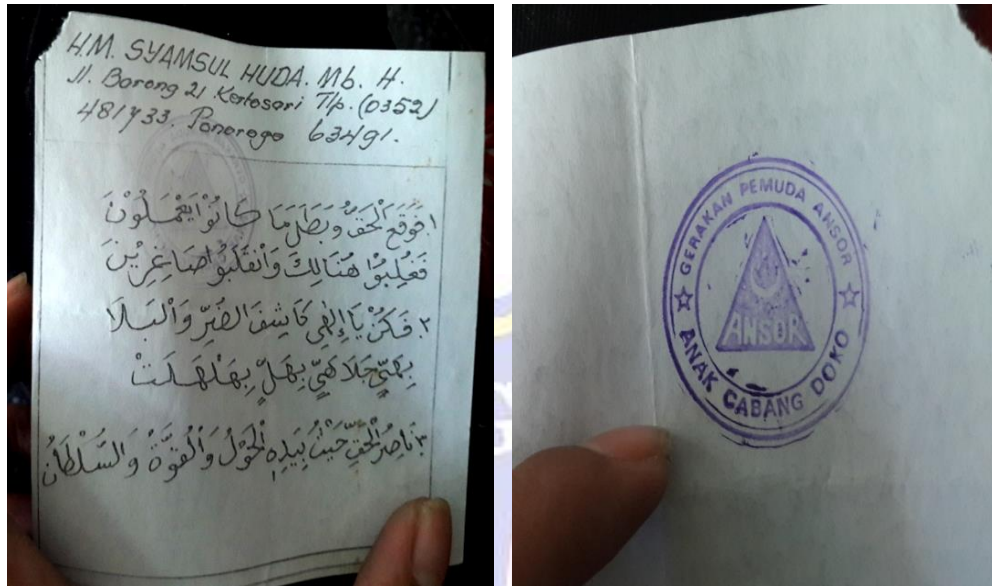 H.M. SYAMSUL HUDA. Mb. H.
Jl. Barong 21 Kertosari Tlp. (0352)
481733. Ponorogo 63491.
١. فَوَقَعَ الْحَقُّ وَبَطَلَ مَا كَانُوْا يَعْمَلُوْنَ
فَغُلِبُوْا هُنَالِكَ وَانْقَلَبُوْا صَاغِرِيْنَ
٢. فَكُنْ يَا إِلٰهِي كَاشِفَ الضُّرِّ وَالْبَلَا
بِهَيٍّ جَلَا هَمِّيْ بِهَلٍّ بِهَلْهَلَتْ
٣. نَاصِرُ الْحَقِّ حَيْثُ بِيَدِهِ الْحَوْلُ وَالْقُوَّةُ وَالسُّلْطَانُ
GERAKAN PEMUDA ANSOR
ANSOR
ANAK CABANG DOKO